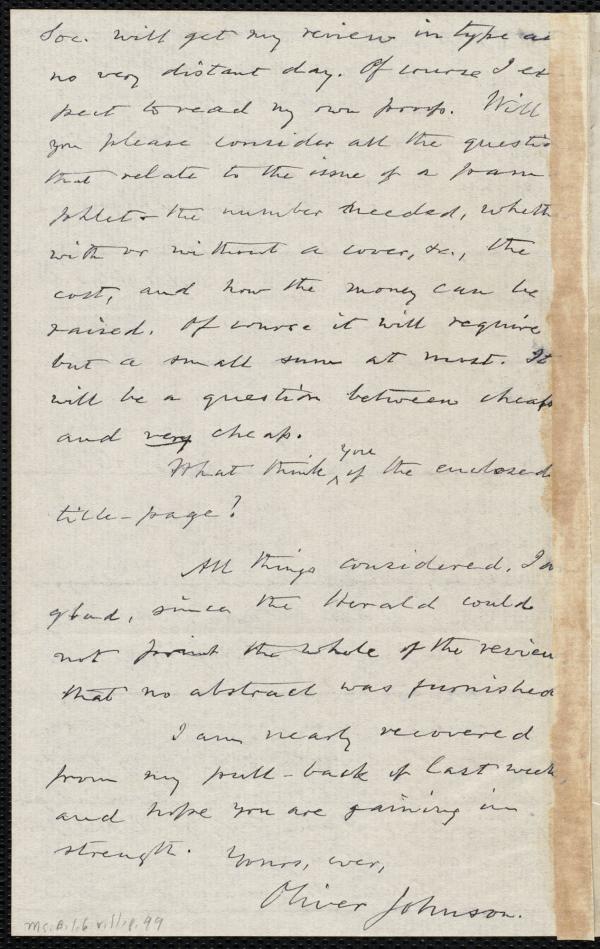 Soc. will get my review in type at
no very distant day. Of course I ex
pect to read my own proofs. Will
you please consider all the questio
that relate to the issue of a pam
phlet - the number needed, wheth
with or without a cover, &c., the
cost, and how the money can be
raised. Of course it will require
but a small sum at most. It
will be a question between cheap
and very cheap.
What think you of the enclosed
title-page?
All things considered, I a
glad, since the Herald could
not print the whole of the review
that no abstract was furnished
I am nearly recovered
from my pull-back of last week,
and hope you are gaining in
strength. Yours, ever,
Oliver Johnson.
Ms. B. 1. 6 v. 11, p. 99